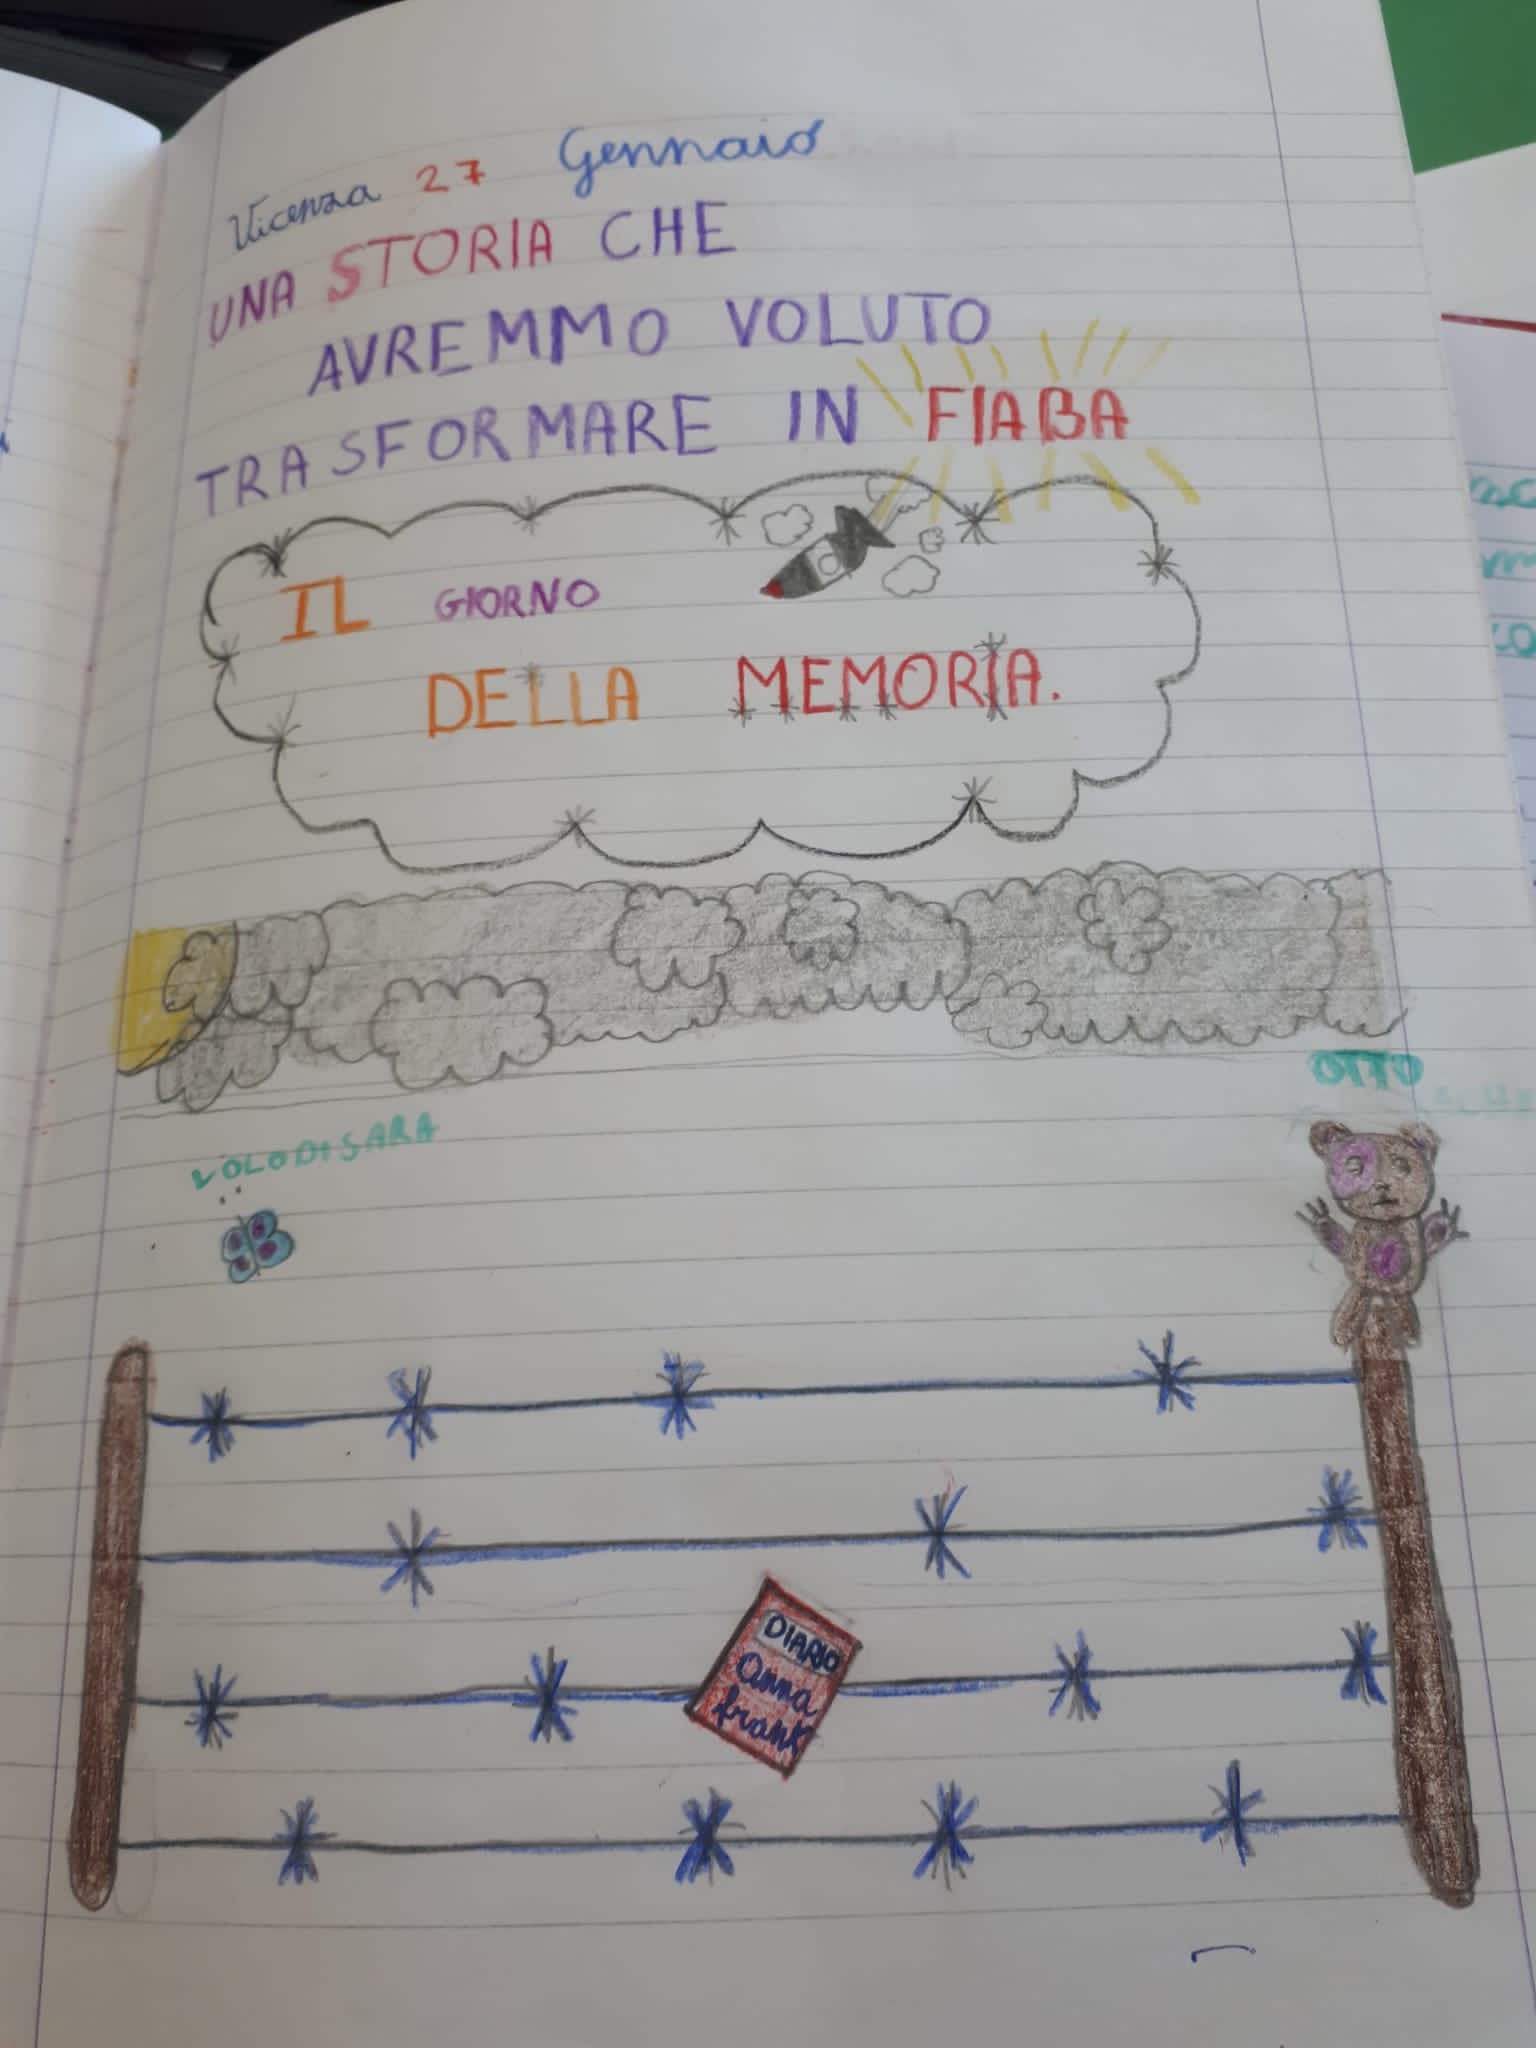 Vicenza 27 Gennaio
UNA STORIA CHE
AVREMMO VOLUTO
TRASFORMARE IN FIABA
IL GIORNO
DELLA MEMORIA.
OTTO
VOLO DI SARA
DIARIO
anna
frank